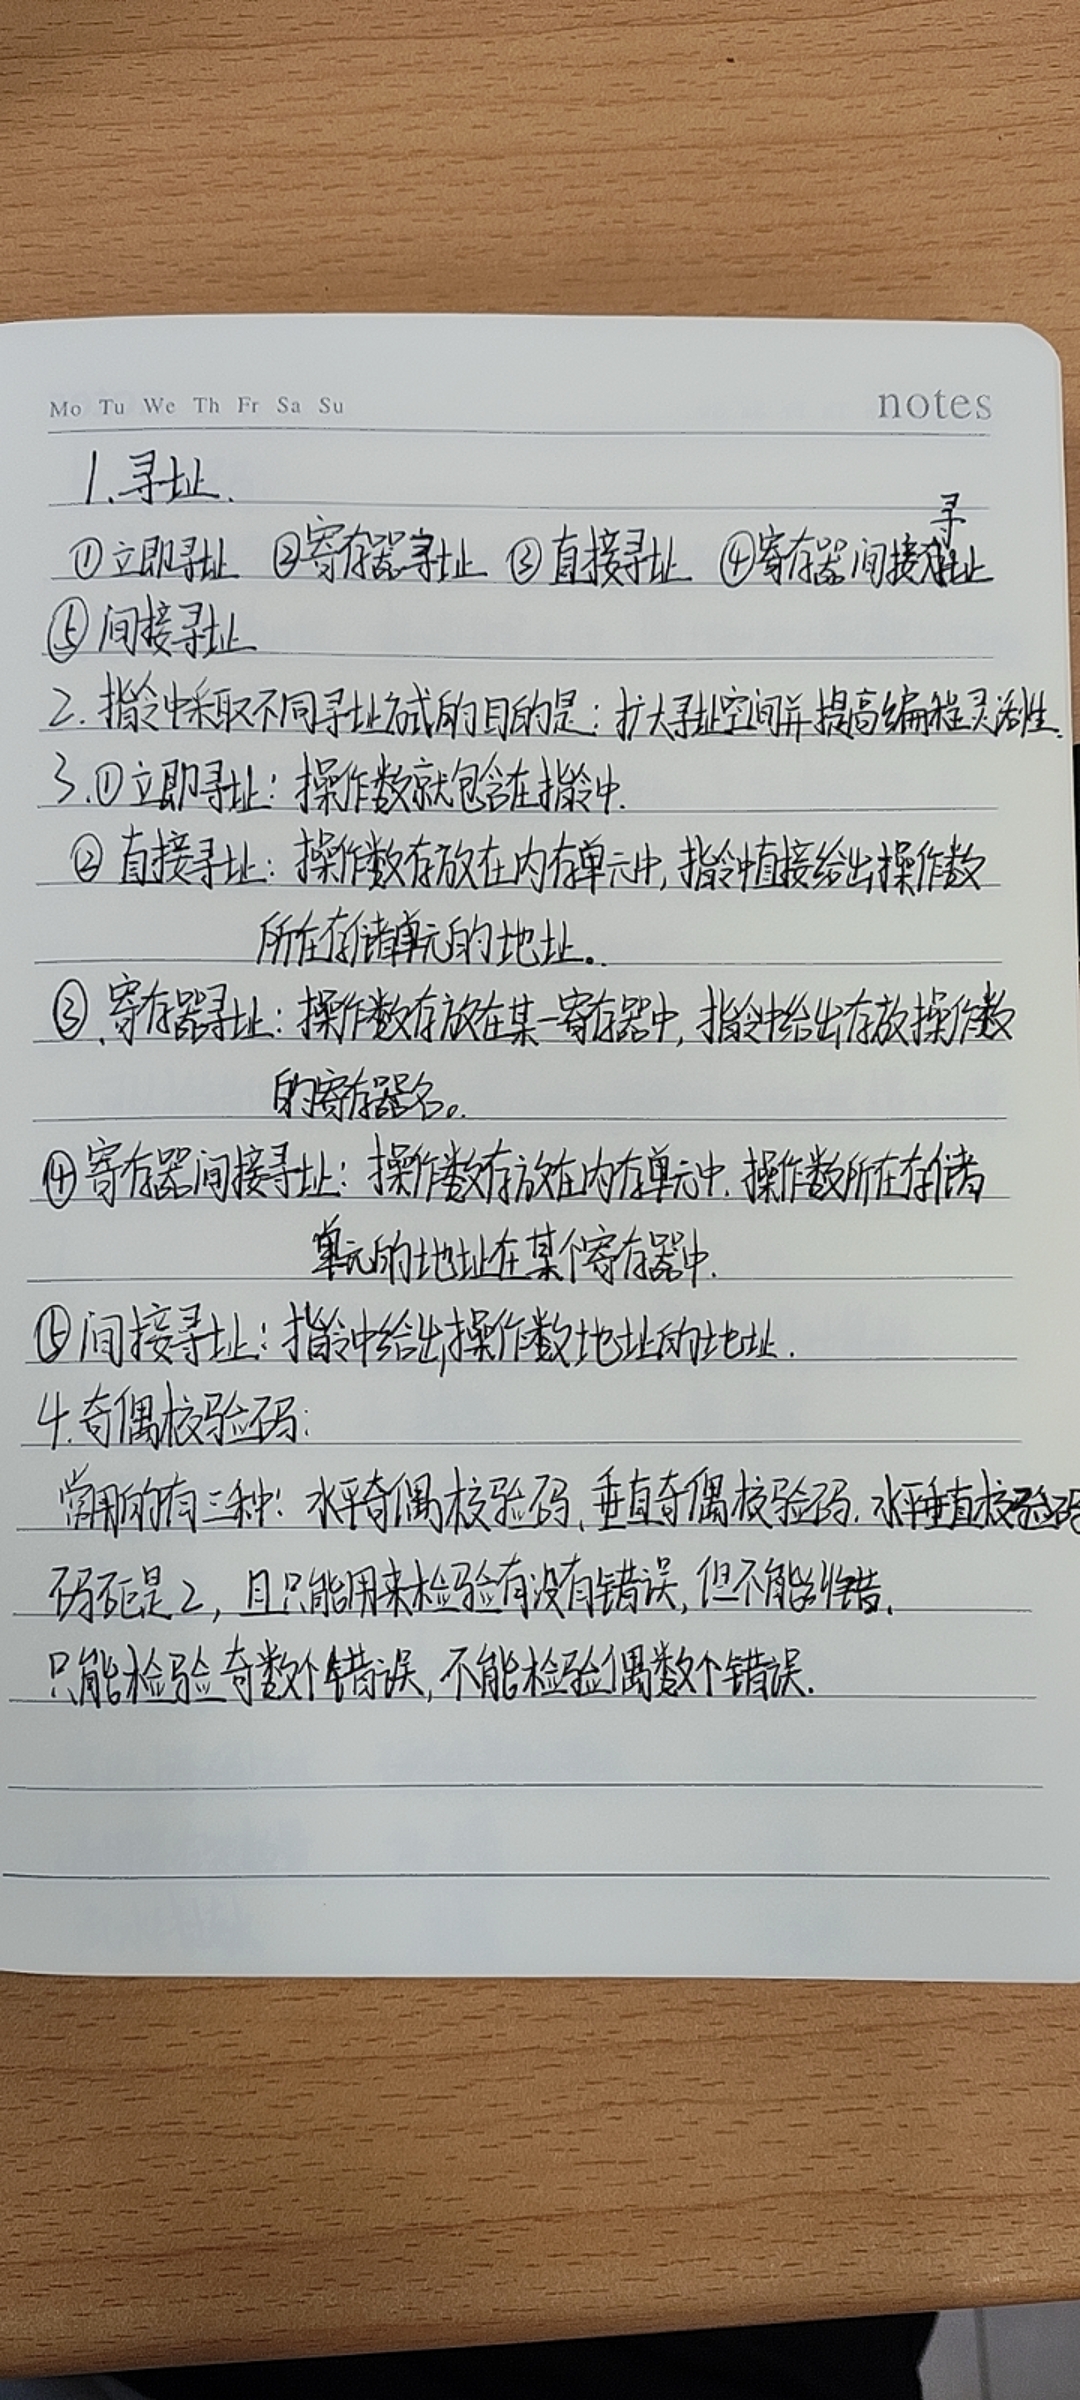 Mo Tu We Th Fr Sa Su notes
1.寻址.
①立即寻址 ②寄存器寻址 ③直接寻址 ④寄存器间接寻址
⑤间接寻址
2.指令中采取不同寻址方式的目的是：扩大寻址空间并提高编程灵活性.
3.①立即寻址：操作数就包含在指令中.
②直接寻址：操作数存放在内存单元中,指令中直接给出操作数
所在存储单元的地址。
③.寄存器寻址：操作数存放在某一寄存器中,指令中给出存放操作数
的寄存器名。
④寄存器间接寻址：操作数存放在内存单元中.操作数所在存储
单元的地址在某个寄存器中.
⑤间接寻址：指令中给出操作数地址的地址.
4.奇偶校验码:
常用的有三种：水平奇偶校验码、垂直奇偶校验码.水平垂直校验码
码距是2,且只能用来检验有没有错误,但不能纠错.
只能检验奇数个错误,不能检验偶数个错误.